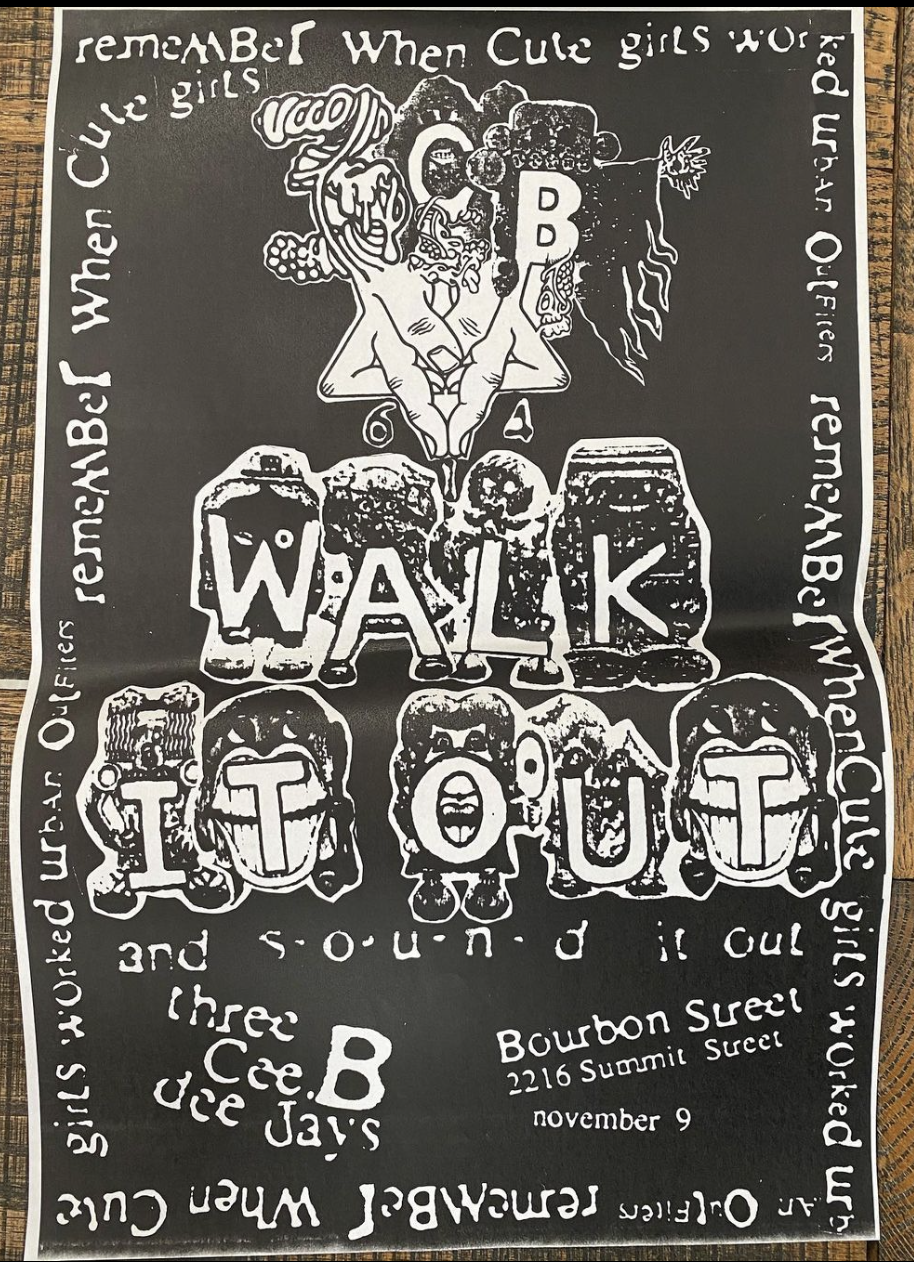 remeMBer When Cute girLS wOrked urban OutFiters remeMBer When Cute girLS wOrked urban OutFiters remeMBer When Cute girLS wOrked urban OutFiters remeMBer When Cute girLS
C B
WALK
IT OUT
and s·o·u·n·d it out
three
Cee.B
dee Jays
Bourbon Street
2216 Summit Street
november 9